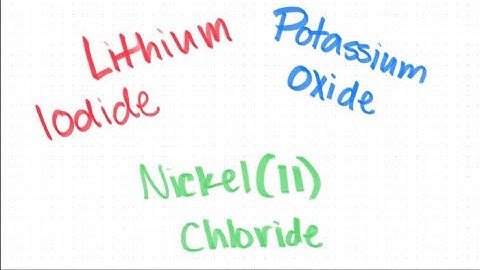 Lithium
Iodide
Potassium
Oxide
Nickel(II)
Chloride